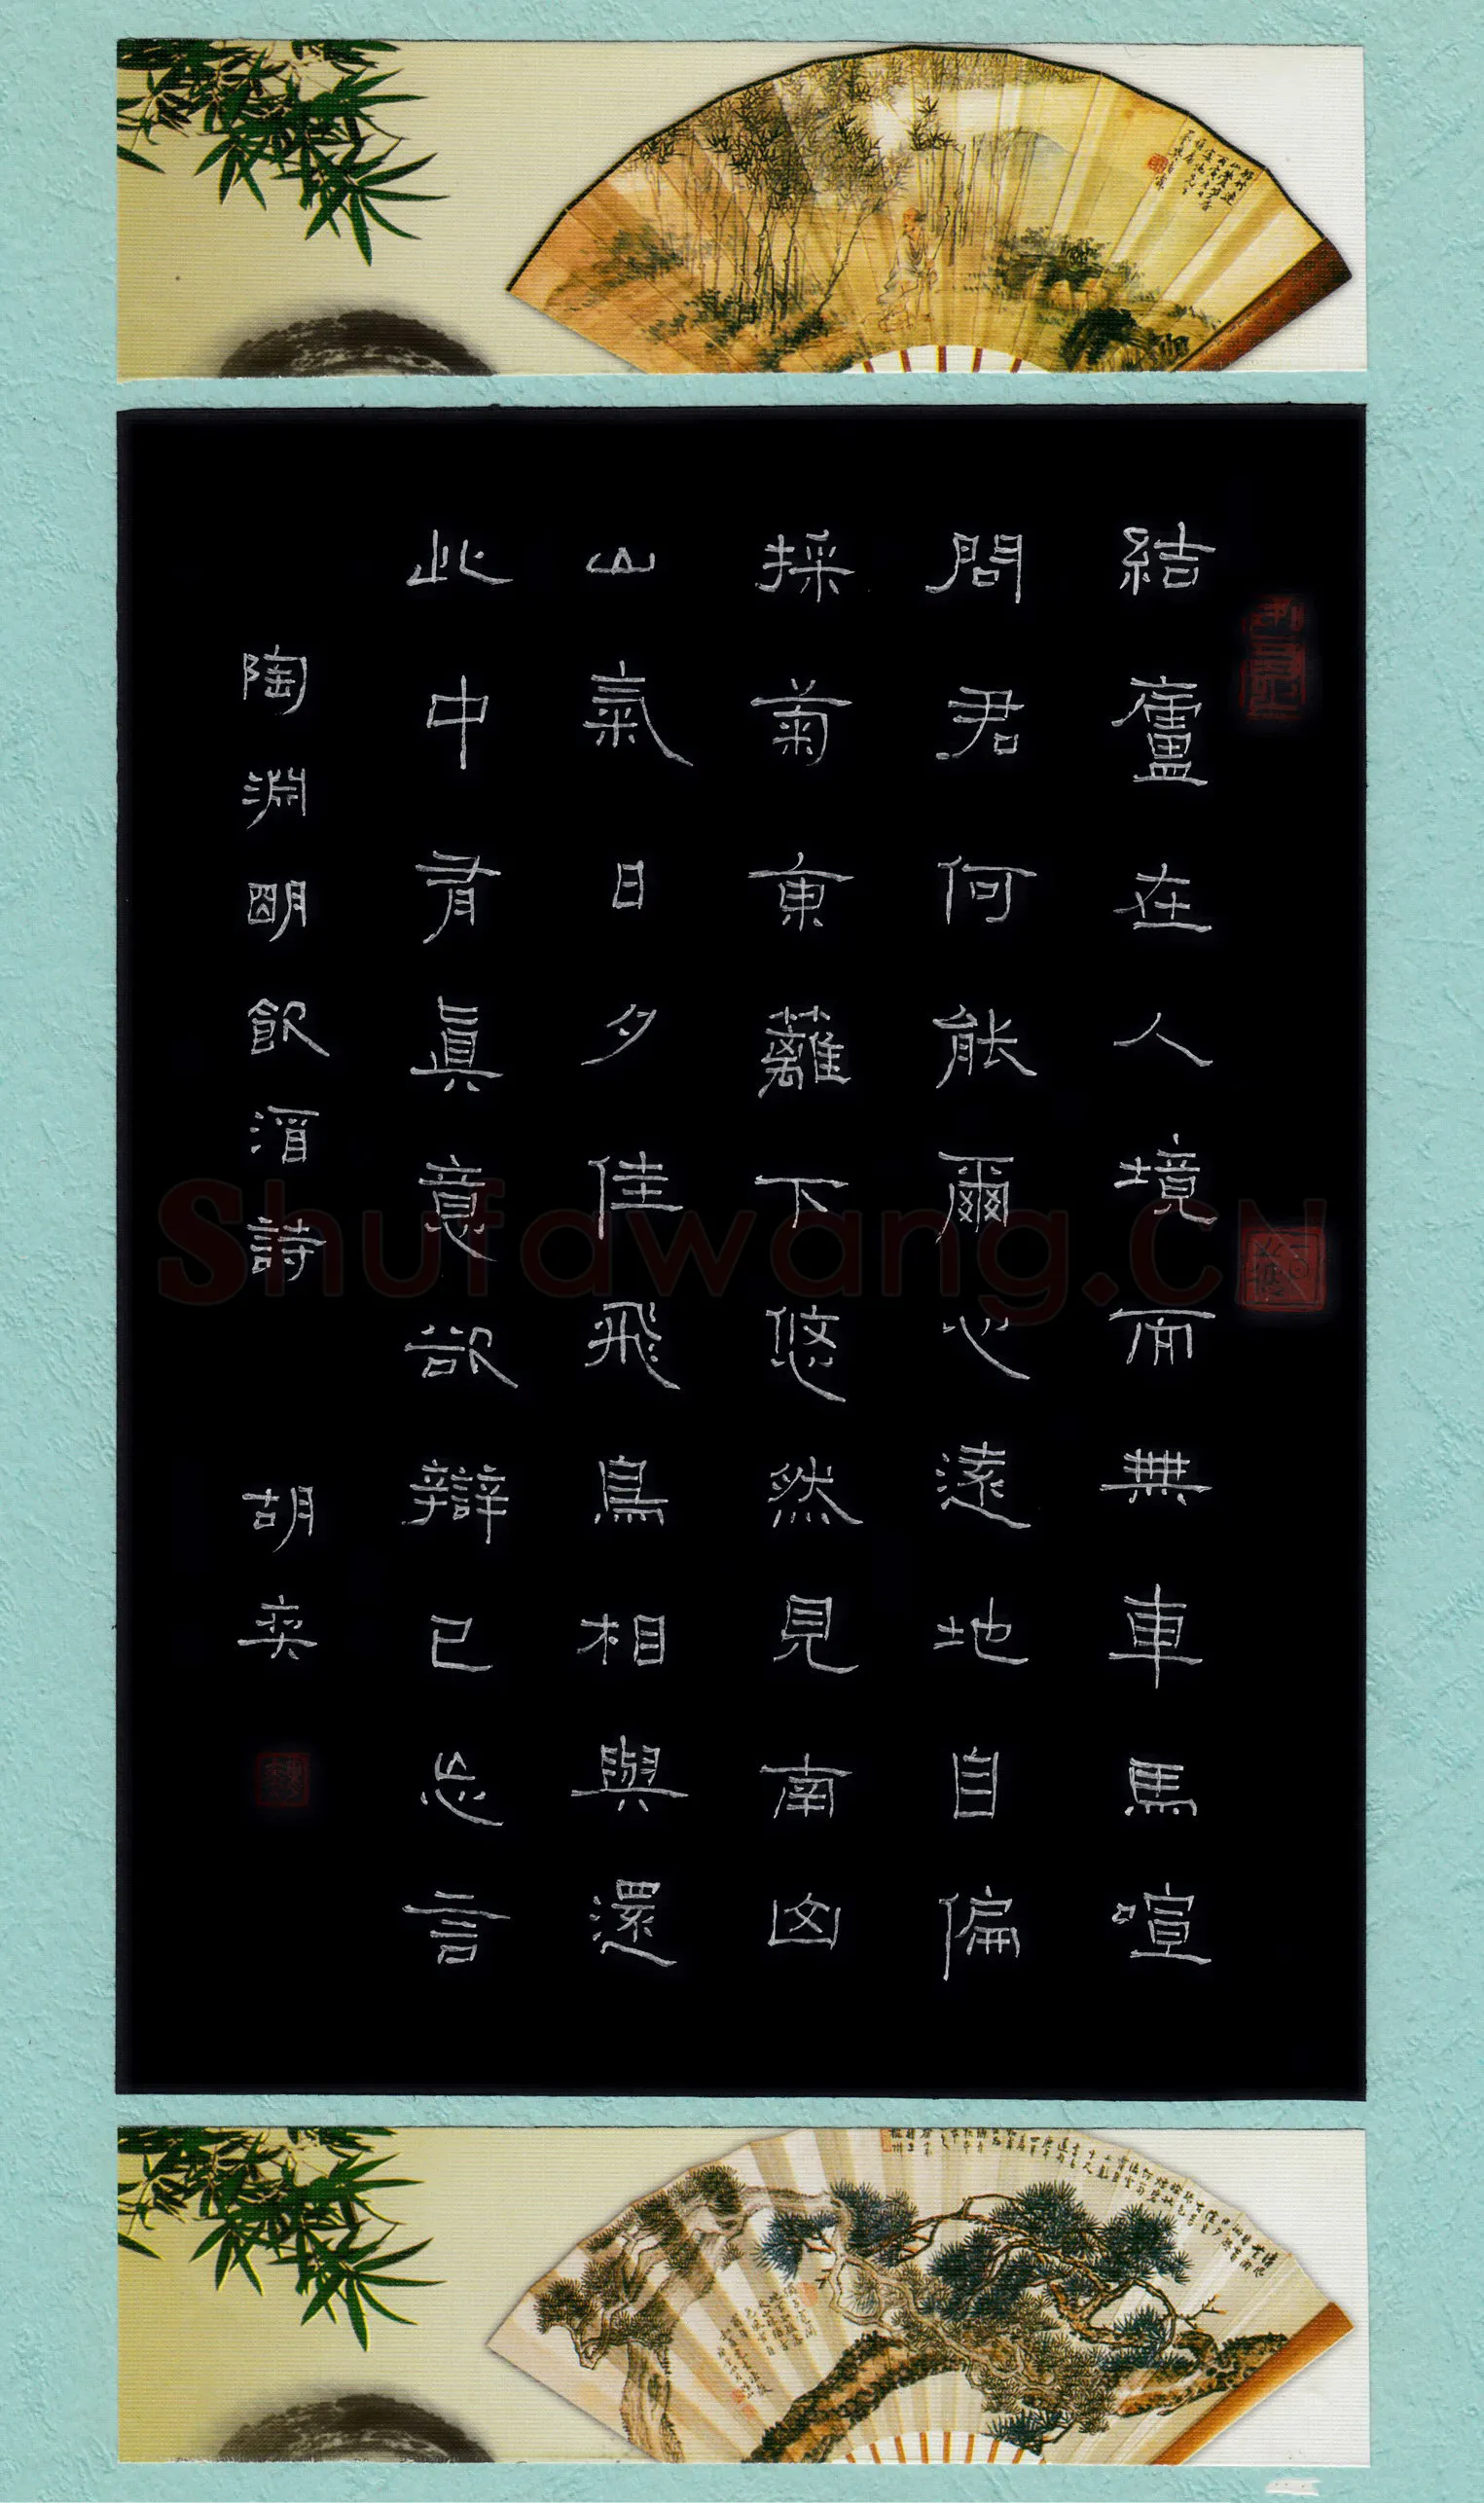 結廬在人境而無車馬喧
問君何能爾心遠地自偏
採菊東蘺下悠然見南山
山氣日夕佳飛鳥相與還
此中有眞意欲辯已忘言
陶淵明飲酒詩 胡奕
Shufawang.CN